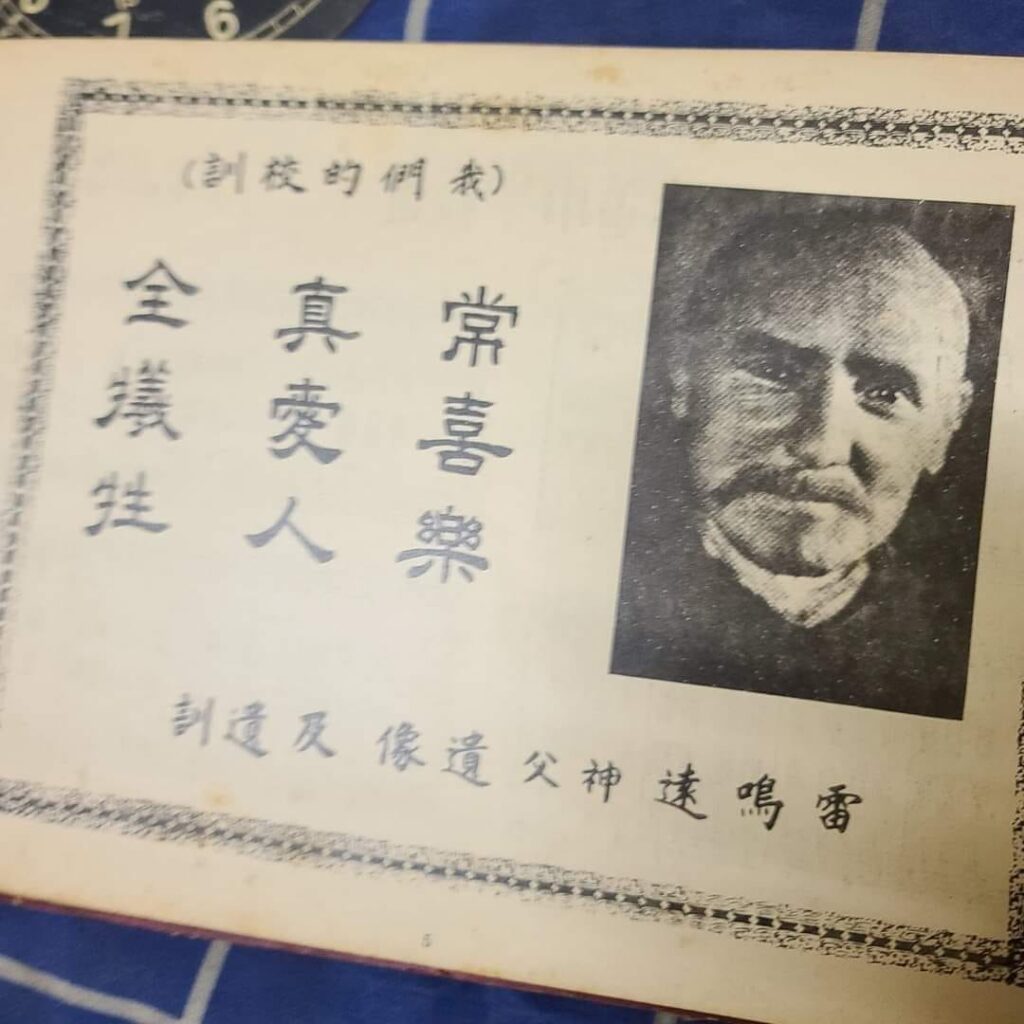 (我們的校訓)
常喜樂
真愛人
全犧牲
雷鳴遠神父遺像及遺訓
5
7
6